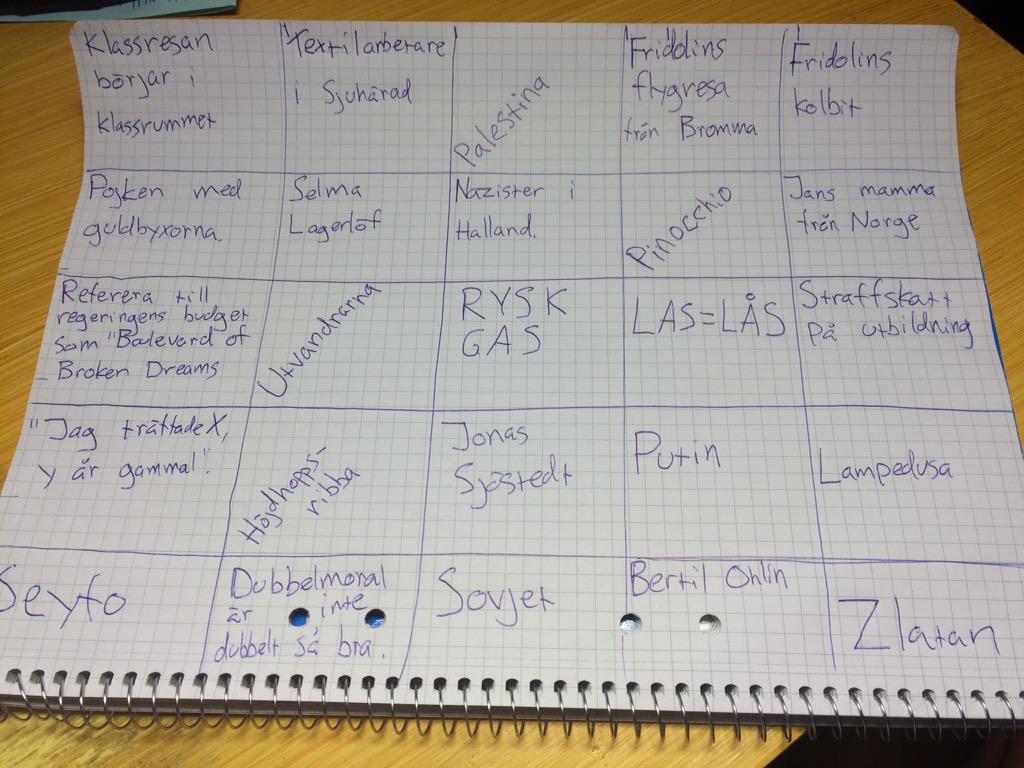 Klassresan
börjar i
klassrummet
Textilarbetare
i Sjuhärad
Palestina
Fridolins
flygresa
från Bromma
Fridolins
kolbit
Pojken med
guldbyxorna.
Selma
Lagerlöf
Nazister i
Halland.
Pinocchio
Jans mamma
från Norge
Referera till
regeringens budget
som "Boulevard of
Broken Dreams
Utvandrarna
RYSK
GAS
LAS=LÅS
Straffskatt
på utbildning
"Jag träffade X,
Y år gammal".
Höjdhopps-
ribba
Jonas
Sjöstedt
Putin
Lampedusa
Seyfo
Dubbelmoral
är inte
dubbelt så bra.
Sovjet
Bertil Ohlin
Zlatan